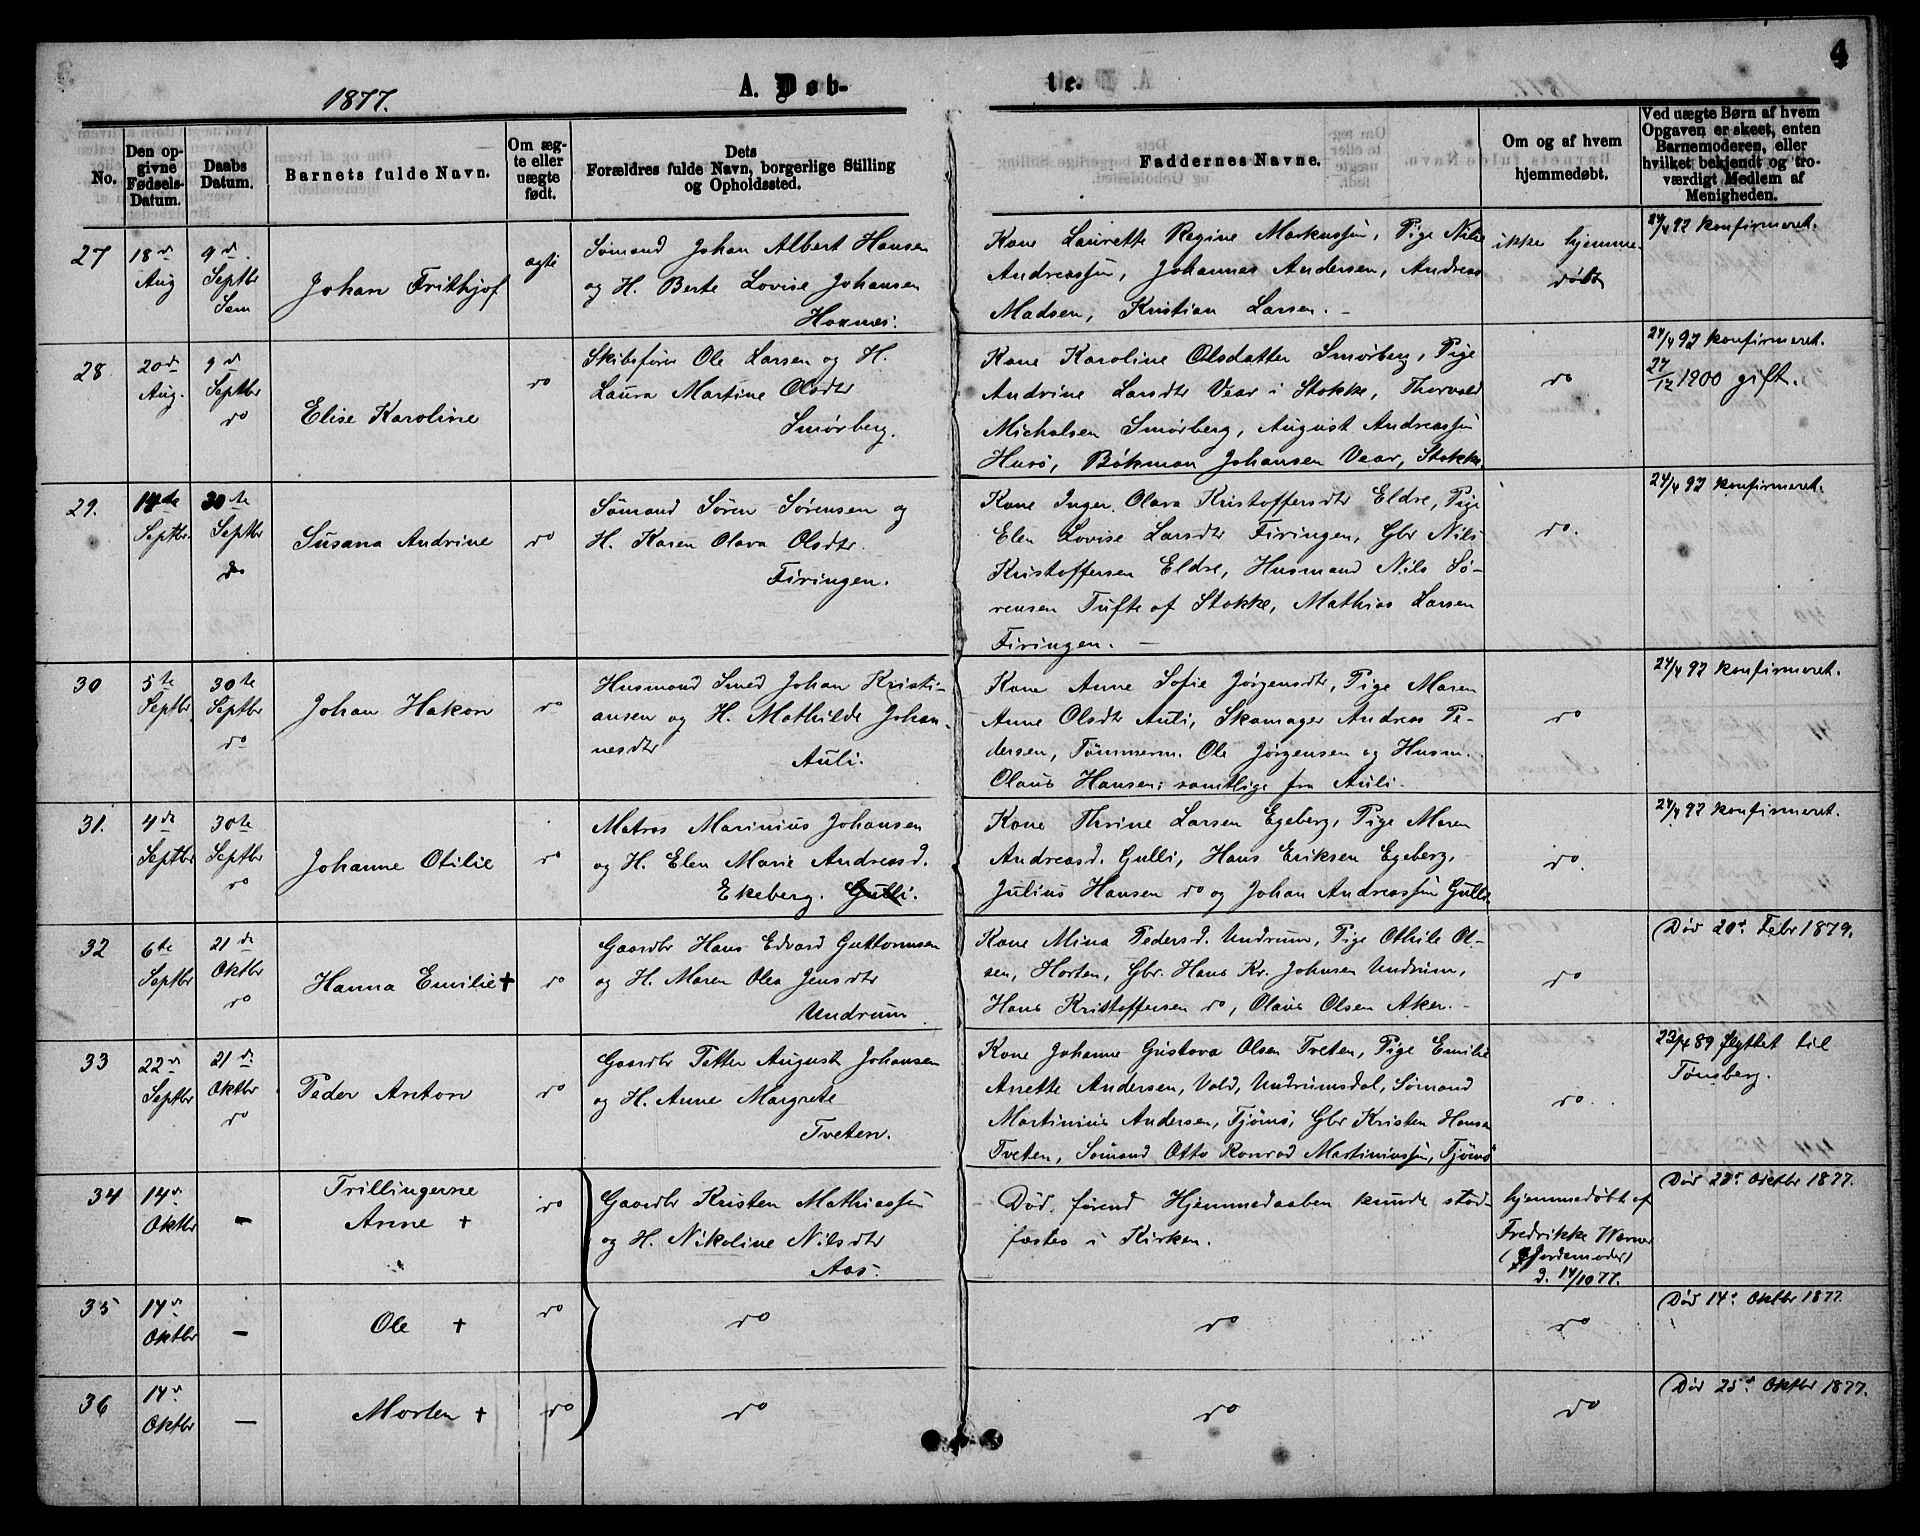 4
1877.
A. Døb-
te.
No.
Den op-
givne
Fødsels-
Datum.
Daabs
Datum.
Barnets fulde Navn.
Om æg-
te eller
uægte
født.
Dets
Forældres fulde Navn, borgerlige Stilling
og Opholdssted.
Faddernes Navne.
Om og af hvem
hjemmedøbt.
Ved uægte Børn af hvem
Opgaven er skeet, enten
Barnemoderen, eller
hvilket bekjendt og tro-
værdigt Medlem af
Menigheden.
27
18de
Aug
9de
Septbr
Sem
Johan Frithjof
ægte
Sømand Johan Albert Hansen
og H. Berte Lovise Johansen
Kone Laurette Regine Markussen, Pige Nilie
Andreassen, Johannes Andersen, Andreas
Madsen, Kristian Larsen. -
ikke hjemme-
døbt
24/4 92 konfirmeret.
28
20de
Aug.
9de
Septbr
do
Elise Karoline
do
Skibsfører Ole Larsen og H.
Laura Martine Olsdtr
Smørberg.
Kone Karoline Olsdatter Smørberg, Pige
Andrine Larsdtr Vear i Stokke, Thorvald
Michalsen Smørberg, August Andreassen
Husø, Bökman Johansen Vear, Stokke
do
24/4 92 konfirmeret.
27/12 1900 gift.
29.
14de
Septbr.
30te
Septbr
do
Susana Andrine
do
Sømand Søren Sørensen og
H. Karen Olava Olsdtr.
Firingen.
Kone Inger Olava Kristoffersdtr Eldre, Pige
Elen Lovise Larsdtr Firingen, Gbr Nils
Kristoffersen Eldre, Husmand Nils Sø-
rensen Tufte af Stokke, Mathias Larsen
Firingen. -
do.
24/4 92 konfirmeret.
30
5te
Septbr
30te
Septbr
do
Johan Hakon
do
Husmand Smed Johan Kristi-
ansen og H. Mathilde Johan-
nesdtr
Auli.
Kone Anne Sofie Jørgensdtr, Pige Maren
Anne Olsdtr Auli, Skomager Andreas Pe-
dersen, Tømmerm. Ole Jørgensen og Husm.
Olaus Hansen; samtlige fra Auli.
do
24/4 92 konfirmeret.
31.
4de
Septbr
30te
Septbr
do
Johanne Otilie
do
Matros Marinius Johansen
og H. Elen Marie Andreasd.
Ekeberg. Gulli.
Kone Thrine Larsen Egeberg, Pige Maren
Andreasd. Gulli, Hans Eriksen Egeberg,
Julius Hansen do og Johan Andreassen Gulli
do.
24/4 92 konfirmeret.
32
6te
Septbr
21de
Oktbr
do
Hanna Emilie +
do
Gaardbr Hans Edvard Guttormsen
og H. Maren Olea Jensdtr
Undrum
Kone Mina Pedersd. Undrum, Pige Othile Ol-
sen, Horten, Gbr. Hans Kr. Johnsen Undrum,
Hans Kristoffersen do, Olaus Olsen Aker. -
do
Død 20de Febr 1879.
33
22de
Septbr
21de
Oktbr
do
Peder Anton
do
Gaardbr Petter August Johansen
og H. Anne Margrete
Tveten.
Kone Johanne Gustava Olsen Tveten, Pige Emilie
Anette Andersen, Vold, Undrumsdal, Sømand
Martinius Andersen, Tjømø, Gbr Kristen Hansen
Tveten, Sømand Otto Konrad Martiniussen, Tjømø
do.
23/4 89 flyttet til
Tønsberg.
34
14de
Oktbr
-
Trillingerne
Anne +
do
Gaardbr Kristen Mathiassen
og H. Nikoline Nilsdtr
Aas.
Død førend Hjemmedaaben kunde stad-
fæstes i Kirken.
hjemmedøbt af
Fredrikke Werner
(Jordemoder)
d. 14/10 77.
35
14de
Oktbr
-
Ole +
do
do
do
do
Død 14de Oktbr 1877.
36
14de
Oktbr
-
Morten +
do
do
do
do
Død 25de Oktbr 1877.